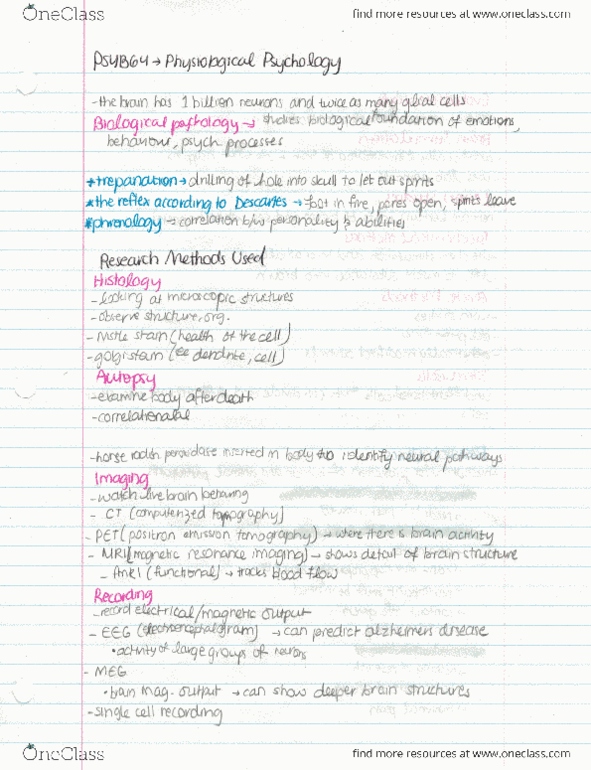 OneClass
find more resources at www.oneclass.com
PSYB64 → Physiological Psychology
-the brain has 1 billion neurons and twice as many glial cells
Biological psychology → studies biological foundation of emotions,
behaviour, psych processes
*trepanation → drilling of hole into skull to let out spirits
*the reflex according to Descartes → foot in fire, pores open, spirits leave
*phrenology → correlation b/w personality & abilities
Research Methods Used
Histology
-looking at microscopic structures
-observe structure, org.
- stain (health of the cell)
-golgi stain ( dendrite, cell)
Autopsy
-examine body after death
-correlational
-horse radish peroxidase inserted in body to identify neural pathways
Imaging
-watch live brain behaving
- CT (computerized )
- PET (positron emission tomography) → where there is brain activity
- MRI (magnetic resonance imaging) → shows detail of brain structure
- fMRI (functional) → tracks blood flow
Recording
-record electrical/magnetic output
- EEG () → can predict alzheimers disease
• activity of large groups of neurons
- MEG
• brain mag. output → can show deeper brain structures
-single cell recording
OneClass
find more resources at www.oneclass.com